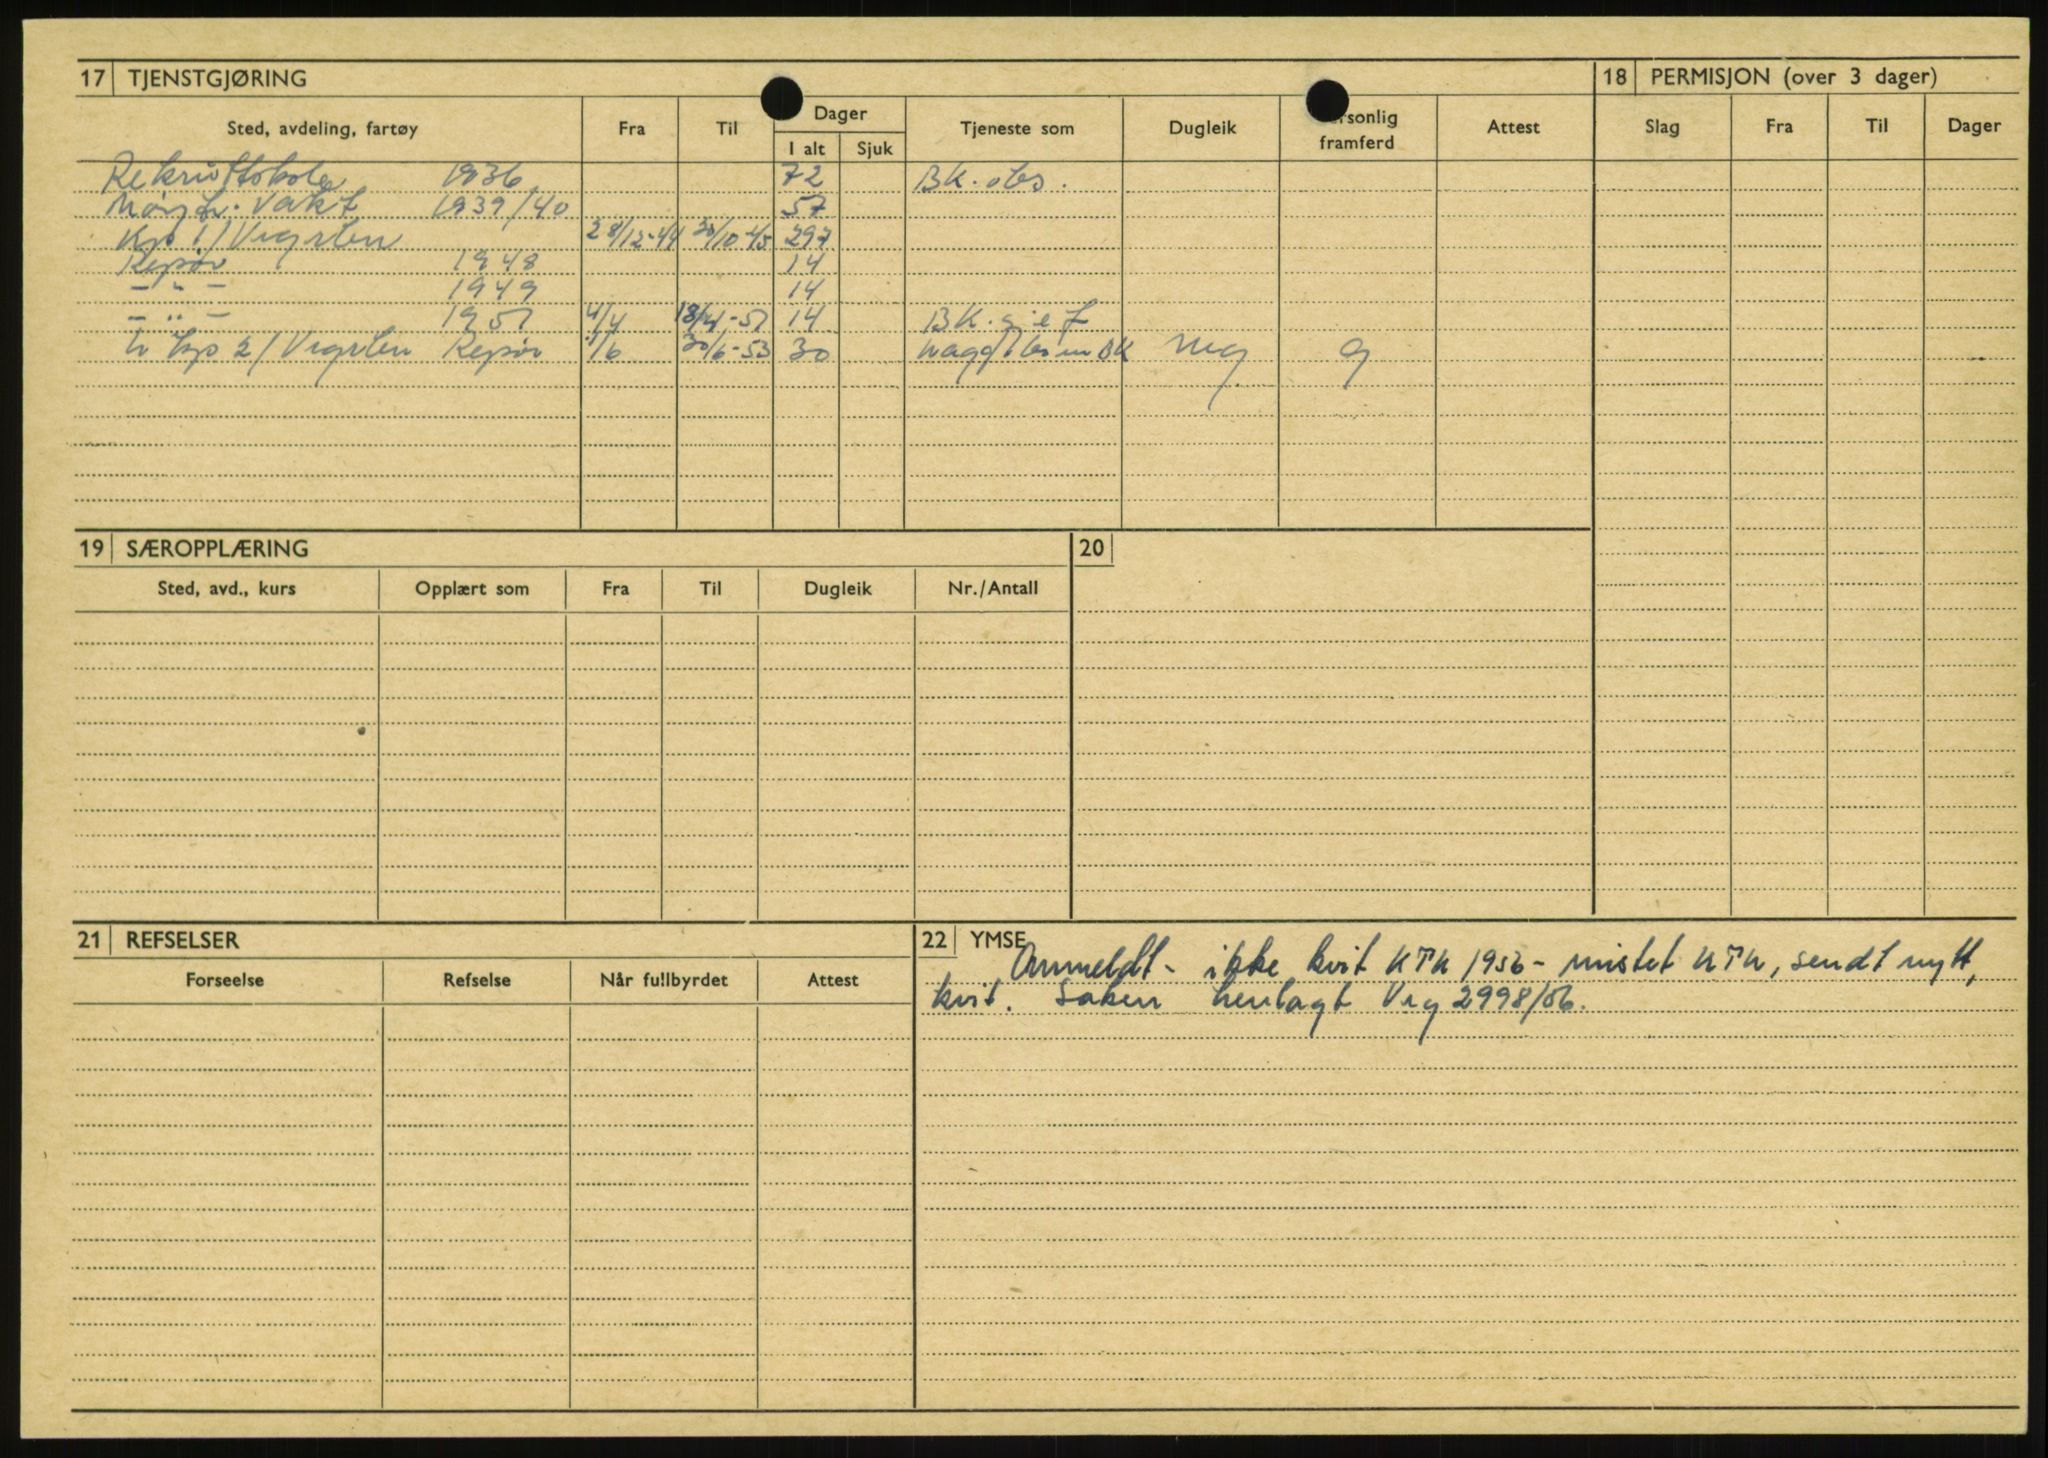 17 TJENSTGJØRING
Sted, avdeling, fartøy Fra Til Dager I alt Sjuk Tjeneste som Dugleik rsonlig framferd Attest
Rekruttskole 1936. 72 BK. obs.
Nøytr. vakt 1939/40 57
Kp 1/Vegsten 28/12-44 20/10-45 297
Repøv 1948 14
- " - 1949 14
- " - 1951 4/4 18/4-51 14 BK.
kp 2/Vegsten Repøv 1/6 30/6-53 30 BK mg g
18 PERMISJON (over 3 dager)
Slag Fra Til Dager
19 SÆROPPLÆRING
Sted, avd., kurs Opplært som Fra Til Dugleik Nr./Antall
20
21 REFSELSER
Forseelse Refselse Når fullbyrdet Attest
22 YMSE
Anmeldt - ikke kvit KTK 1956 - mistet KTK, sendt nytt,
kvit. Saken henlagt Vrg 2998/56.